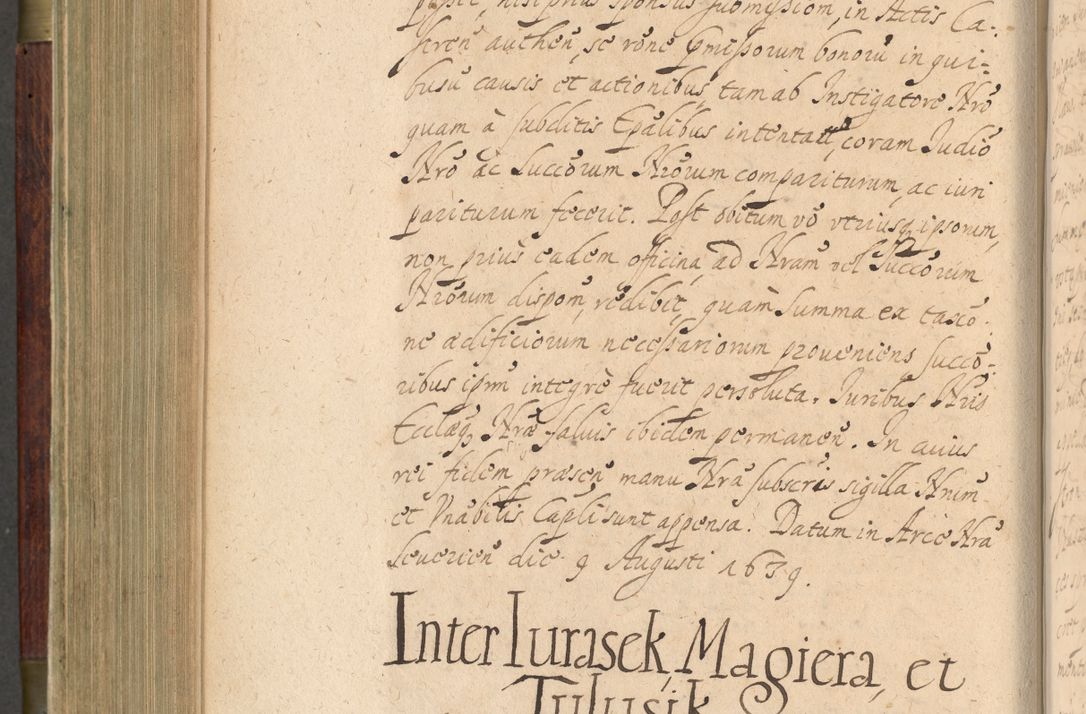 nisi prius sponsus submissiom, in Actis Ca-
stren authen, se rõne pmissorum bonorũ in qui-
busũ causis et actionibus, tam ab Instigatore Nrõ
quam à subditis Epãlibus intentatt, coram Iudiõ
Nrõ ac Succõrum Nrõrum compariturum, ac iuri
pariturum fecerit. Post obitum võ vtriusq; ipsorum,
non priùs eadem officina ad Nram vel Succõrum
Nrõrum dispoñ, redibit, quàm Summa ex taxõ-
ne ædificiorum necessariorum proueniens succõ-
ribus ipm̃ integrè fuerit persoluta. Iuribus Nris
Ecclæq; Nræ saluis ibidem permaneñ. In cuius
rei fidem præseñ manu Nra subscris sigilla Nrum
et Vnãbilis Capli sunt appensa. Datum in Arce Nra
Seuerieñ die 9 Augusti 1639.
Inter Iurasek, Magiera, et
Tulusik